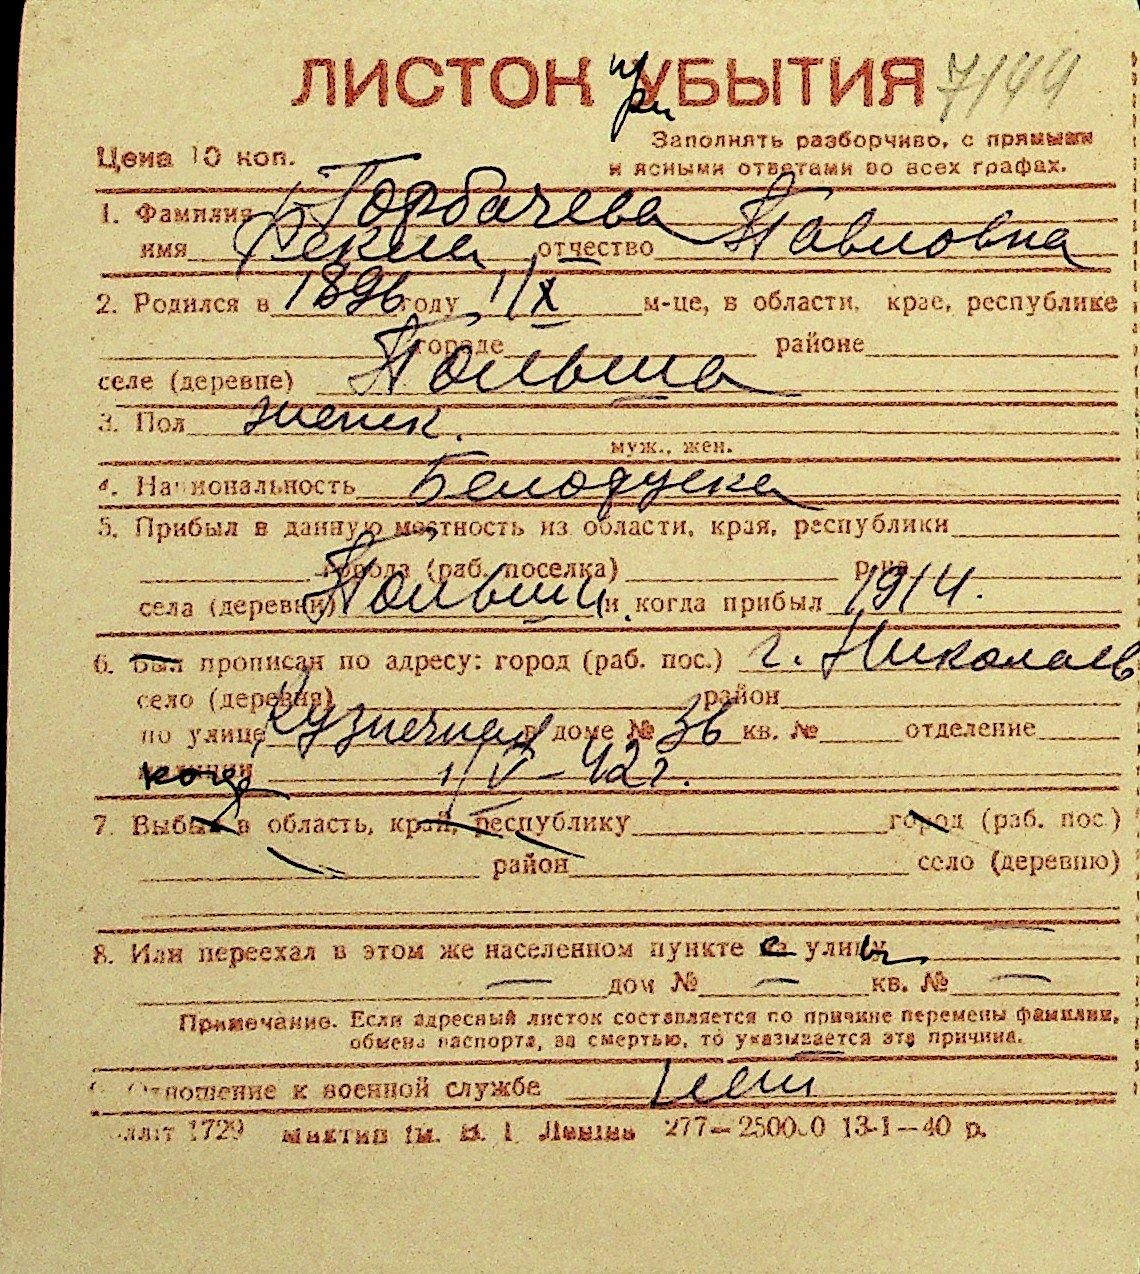 ЛИСТОК при УБЫТИЯ 7144
Цена 10 коп. Заполнять разборчиво, с прямыми
и ясными ответами во всех графах.
1. Фамилия Горбачева
имя Фекла отчество Павловна
2. Родился в 1896 году 1/X м-це, в области, крае, республике
городе районе
селе (деревне) Польша
3. Пол женск.
муж., жен.
4. Национальность Белоруска
5. Прибыл в данную местность из области, края, республики
города (раб. поселка) р-на
села (деревни) Польши и когда прибыл 1914.
6. Был прописан по адресу: город (раб. пос.) г. Николаев
село (деревня) район
по улице Кузнечная в доме № 36 кв. № отделение
когда 1/V-42 г.
7. Выбыл в область, край, республику город (раб. пос.)
район село (деревню)
8. Или переехал в этом же населенном пункте с улицы
дом № кв. №
Примечание. Если адресный листок составляется по причине перемены фамилии,
обмена паспорта, за смертью, то указывается эта причина.
9. Отношение к военной службе
1729 277—2500 13-1—40 р.